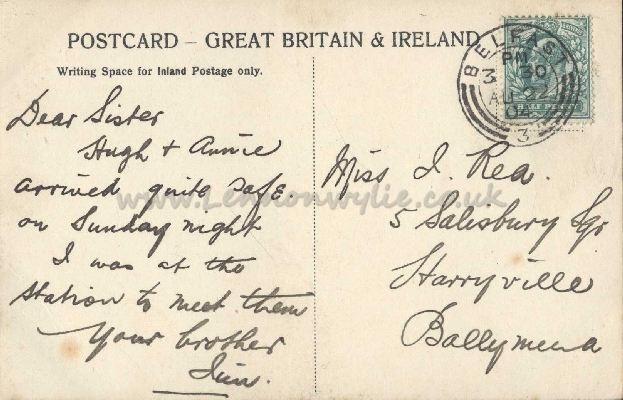 POSTCARD – GREAT BRITAIN & IRELAND
Writing Space for Inland Postage only.
BELFAST
PM
3 30
04
3
HALF PENNY
Dear Sister
Hugh + Annie
arrived quite safe
on Sunday night
I was at the
station to meet them
Your brother
Miss I. Rea.
5 Salisbury Sqr
Harryville
Ballymena
www.Lennonwylie.co.uk